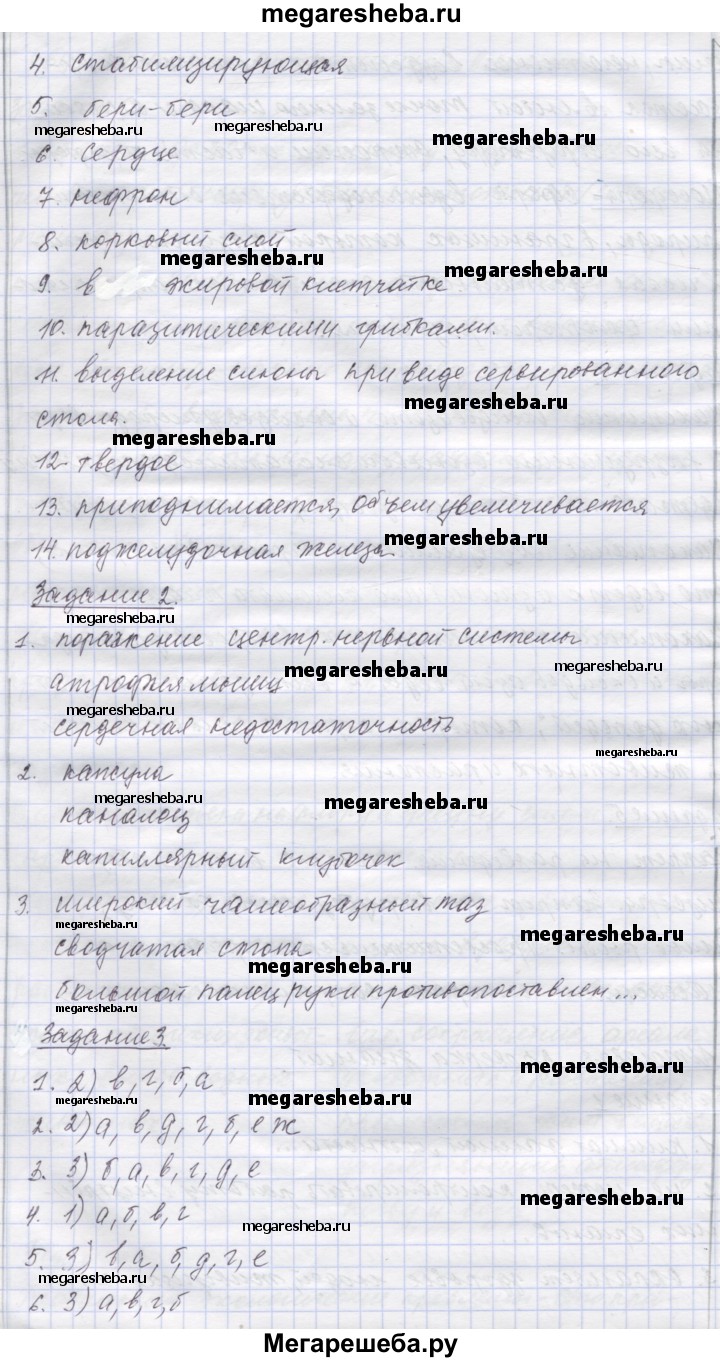 megaresheba.ru
4. стабилизирующая
5. бери-бери
megaresheba.ru megaresheba.ru megaresheba.ru
6. Сердце
7. нефрон
8. корковый слой
megaresheba.ru megaresheba.ru
9. в жировой клетчатке
10. паразитическими грибками.
11. выделение слюны при виде сервированного
megaresheba.ru
стола.
megaresheba.ru
12 твердое
13. приподнимается, объем увеличивается
14. поджелудочная железа
megaresheba.ru
Задание 2.
megaresheba.ru
1. поражение центр. нервной системы
megaresheba.ru megaresheba.ru
атрофия мышц
megaresheba.ru
сердечная недостаточность
megaresheba.ru
2. капсула
megaresheba.ru megaresheba.ru
каналец
капиллярный клубочек
3. широкий чашеобразный таз
megaresheba.ru megaresheba.ru
сводчатая стопа
megaresheba.ru
большой палец руки противопоставлен...
Задание 3.
megaresheba.ru
1. 2) в, г, б, а
megaresheba.ru megaresheba.ru
2. 2) а, в, д, г, б, е ж
3. 3) б, а, в, г, д, е
megaresheba.ru
4. 1) а, б, в, г
megaresheba.ru
5. 3) в, а, б, д, г, е
megaresheba.ru megaresheba.ru
6. 3) а, в, г, б
Мегарешеба.ру